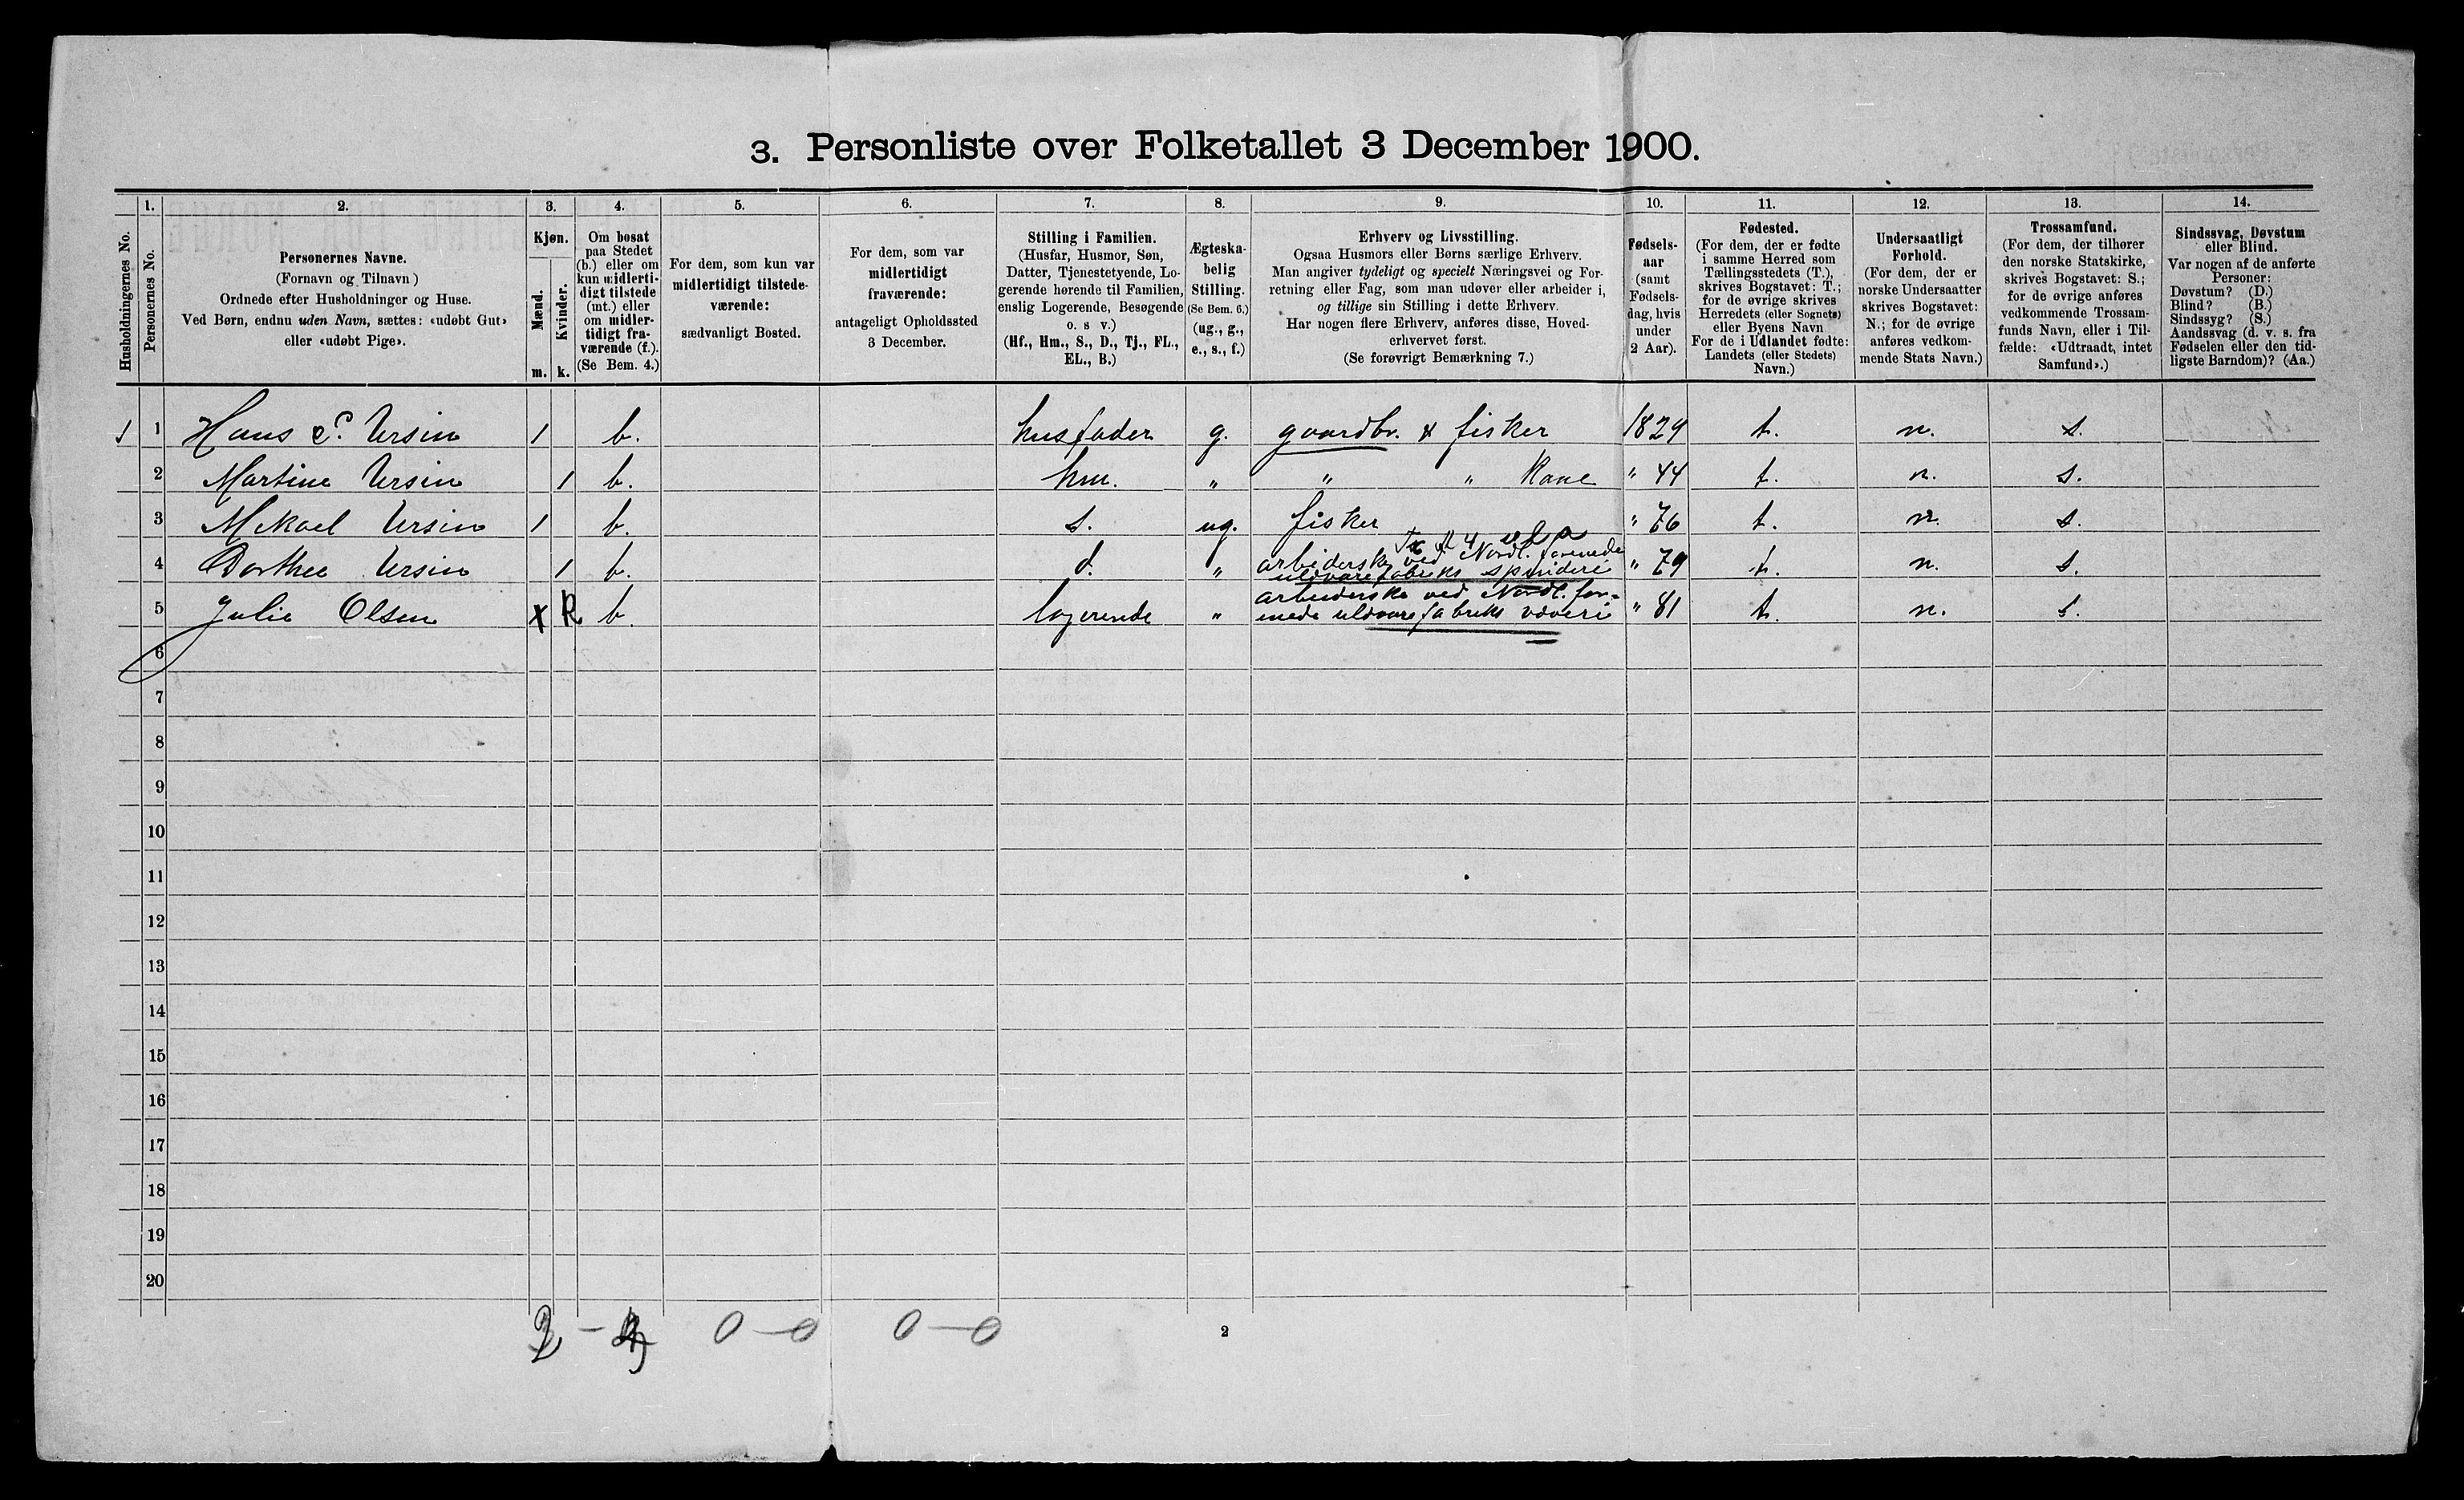 3. Personliste over Folketallet 3 December 1900.
1. 2. 3. 4. 5. 6. 7. 8. 9. 10. 11. 12. 13. 14.
Husholdningernes No.
Personernes No.
Personernes Navne.
(Fornavn og Tilnavn)
Ordnede efter Husholdninger og Huse.
Ved Børn, endnu uden Navn, sættes: «udøbt Gut»
eller «udøbt Pige».
Kjøn.
Mænd.
Kvinder.
m. k.
Om bosat
paa Stedet
(b.) eller om
kun midlerti-
digt tilstede
(mt.) eller
om midler-
tidigt fra-
værende (f.).
(Se Bem. 4.)
For dem, som kun var
midlertidigt tilstede-
værende:
sædvanligt Bosted.
For dem, som var
midlertidigt
fraværende:
antageligt Opholdssted
3 December.
Stilling i Familien.
(Husfar, Husmor, Søn,
Datter, Tjenestetyende, Lo-
gerende hørende til Familien,
enslig Logerende, Besøgende
o. s v.)
(Hf., Hm., S., D., Tj., FL.,
EL., B.)
Ægteska-
belig
Stilling.
(Se Bem. 6.)
(ug., g.,
e., s., f.)
Erhverv og Livsstilling.
Ogsaa Husmors eller Børns særlige Erhverv.
Man angiver tydeligt og specielt Næringsvei og For-
retning eller Fag, som man udøver eller arbeider i,
og tillige sin Stilling i dette Erhverv.
Har nogen flere Erhverv, anføres disse, Hoved-
erhvervet først.
(Se forøvrigt Bemærkning 7.)
Fødsels-
aar
(samt
Fødsels-
dag, hvis
under
2 Aar).
Fødested.
(For dem, der er fødte
i samme Herred som
Tællingsstedets (T.),
skrives Bogstavet: T.;
for de øvrige skrives
Herredets (eller Sognets)
eller Byens Navn
For de i Udlandet fødte:
Landets (eller Stedets)
Navn.)
Undersaatligt
Forhold.
(For dem, der er
norske Undersaatter
skrives Bogstavet:
N.; for de øvrige
anføres vedkom-
mende Stats Navn.)
Trossamfund.
(For dem, der tilhører
den norske Statskirke,
skrives Bogstavet: S.;
for de øvrige anføres
vedkommende Trossam-
funds Navn, eller i Til-
fælde: «Udtraadt, intet
Samfund».)
Sindssvag, Døvstum
eller Blind.
Var nogen af de anførte
Personer:
Døvstum? (D.)
Blind? (B.)
Sindssyg? (S.)
Aandssvag (d. v. s. fra
Fødselen eller den tid-
ligste Barndom)? (Aa.)
1 1 Hans P. Ursin 1 b. husfader g. gaardbr. & fisker 1829 t. n. s.
2 Martine Ursin 1 b. hm. " " " Kone " 44 t. n. s.
3 Mikael Ursin 1 b. s. ug. fisker " 76 t. n. s.
4 Dorthee Ursin 1 b. d. " arbeiderske ved Nordl. forenede
uldvarefabriks spinderi " 79 t. n. s.
5 Julie Olsen x k b. logerende " arbeiderske ved Nordl. for-
enede uldvarefabriks væveri " 81 t. n. s.
6
7
8
9
10
11
12
13
14
15
16
17
18
19
20
2 - 0 - 0 0 - 0
2